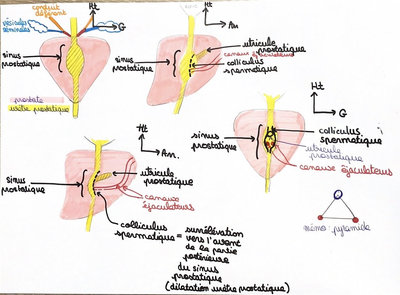 conduit
déférent
Ht
G
vésicules
séminales
sinus
prostatique
prostate
urètre prostatique
Ht
An.
utricule
prostatique
canaux éjaculateurs
colliculus
spermatique
sinus
prostatique
Ht
G
colliculus
spermatique
utricule
prostatique
canaux éjaculateurs
sinus
prostatique
Ht
An.
utricule
prostatique
canaux
éjaculateurs
sinus
prostatique
colliculus
spermatique = surélévation
vers l'avant
de la partie
postérieure
du sinus
prostatique
(dilatation urètre prostatique)
mémo pyramide